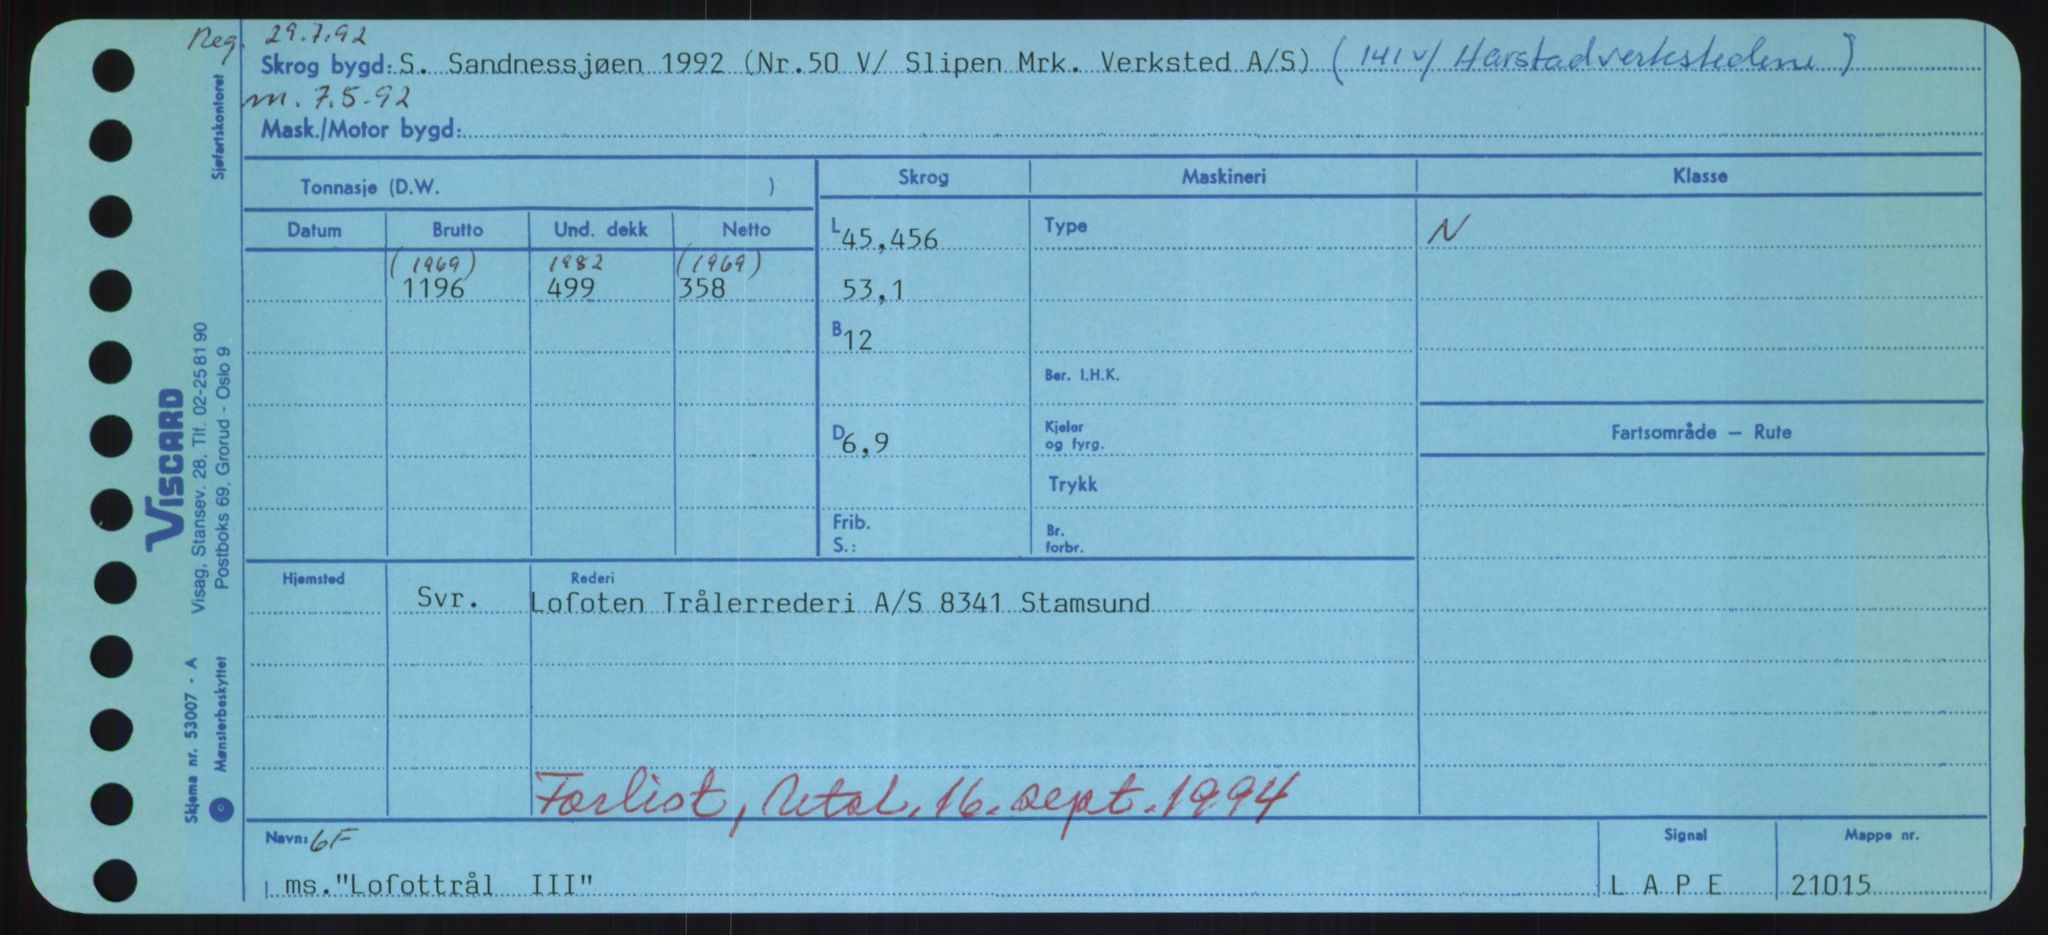 Reg. 29.7.92
Skrog bygd: S. Sandnessjøen 1992 (Nr.50 V/ Slipen Mrk. Verksted A/S) (141 v/ Harstadverkstedene)
m. 7.5-92
Mask./Motor bygd:
Sjøfartskontoret
Tonnasje (D.W. )
Skrog Maskineri Klasse
Datum Brutto Und. dekk Netto
L 45,456 Type N
(1969) 1982 (1969)
1196 499 358 53,1
B 12
Ber. I.H.K.
D 6,9
Kjeler
og fyrg.
Fartsområde — Rute
Trykk
Frib.
S.:
Br.
forbr.
VISCARD
Visag, Stansev. 28, Tlf. 02-25 81 90
Postboks 69, Grorud - Oslo 9
Hjemsted Rederi
Svr. Lofoten Trålerrederi A/S 8341 Stamsund
Skjema nr. 53007 - A
Mønsterbeskyttet
Forlist, 16. sept. 1994
Navn: 6F Signal Mappe nr.
ms."Lofottrål III" L A P E 21015